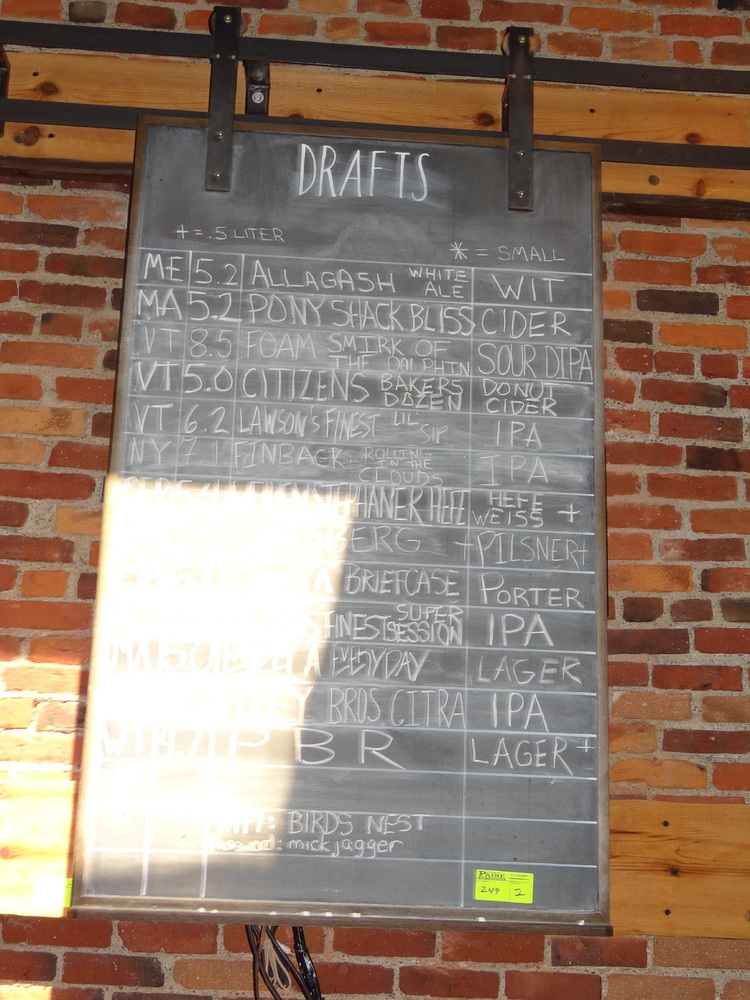 DRAFTS
+ = .5 LITER
* = SMALL
ME 5.2 ALLAGASH WHITE ALE WIT
MA 5.2 PONY SHACK BLISS CIDER
VT 8.5 FOAM SMIRK OF THE DOLPHIN SOUR DIPA
VT 5.0 CITIZENS BAKERS DOZEN DONUT CIDER
VT 6.2 LAWSON'S FINEST LIL SIP IPA
NY 7.1 FINBACK ROLLING IN THE CLOUDS IPA
HEFE HEFE WEISS +
PILSNER+
BRIEFCASE PORTER
FINEST SUPER SESSION IPA
MA EVERYDAY LAGER
BROS CITRA IPA
4.7 PBR LAGER +
BIRDS NEST
mick jagger
PAINE
249 2